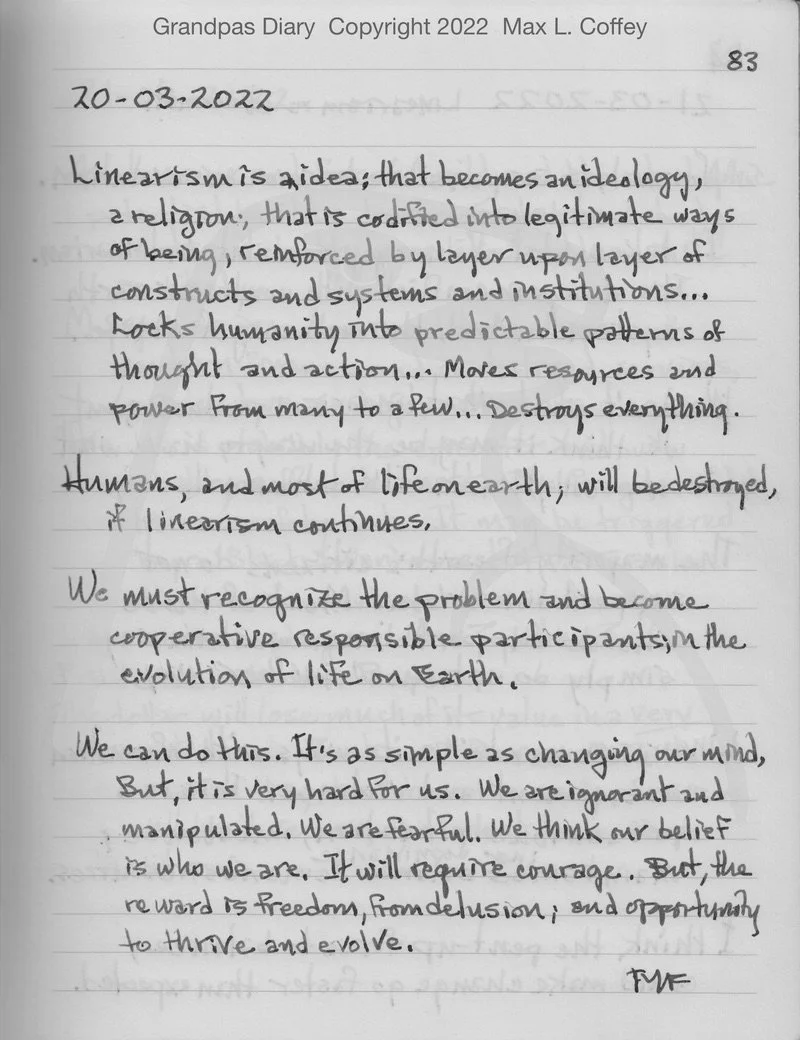 Grandpas Diary Copyright 2022 Max L. Coffey
83
20-03-2022
Linearism is a idea; that becomes an ideology,
a religion;, that is codified into legitimate ways
of being, reinforced by layer upon layer of
constructs and systems and institutions...
Locks humanity into predictable patterns of
thought and action... Moves resources and
power from many to a few... Destroys everything.
Humans, and most of life on earth; will be destroyed,
if linearism continues.
We must recognize the problem and become
cooperative responsible participants; in the
evolution of life on Earth.
We can do this. It's as simple as changing our mind,
But, it is very hard for us. We are ignorant and
manipulated. We are fearful. We think our belief
is who we are. It will require courage. But, the
reward is freedom, from delusion; and opportunity
to thrive and evolve.